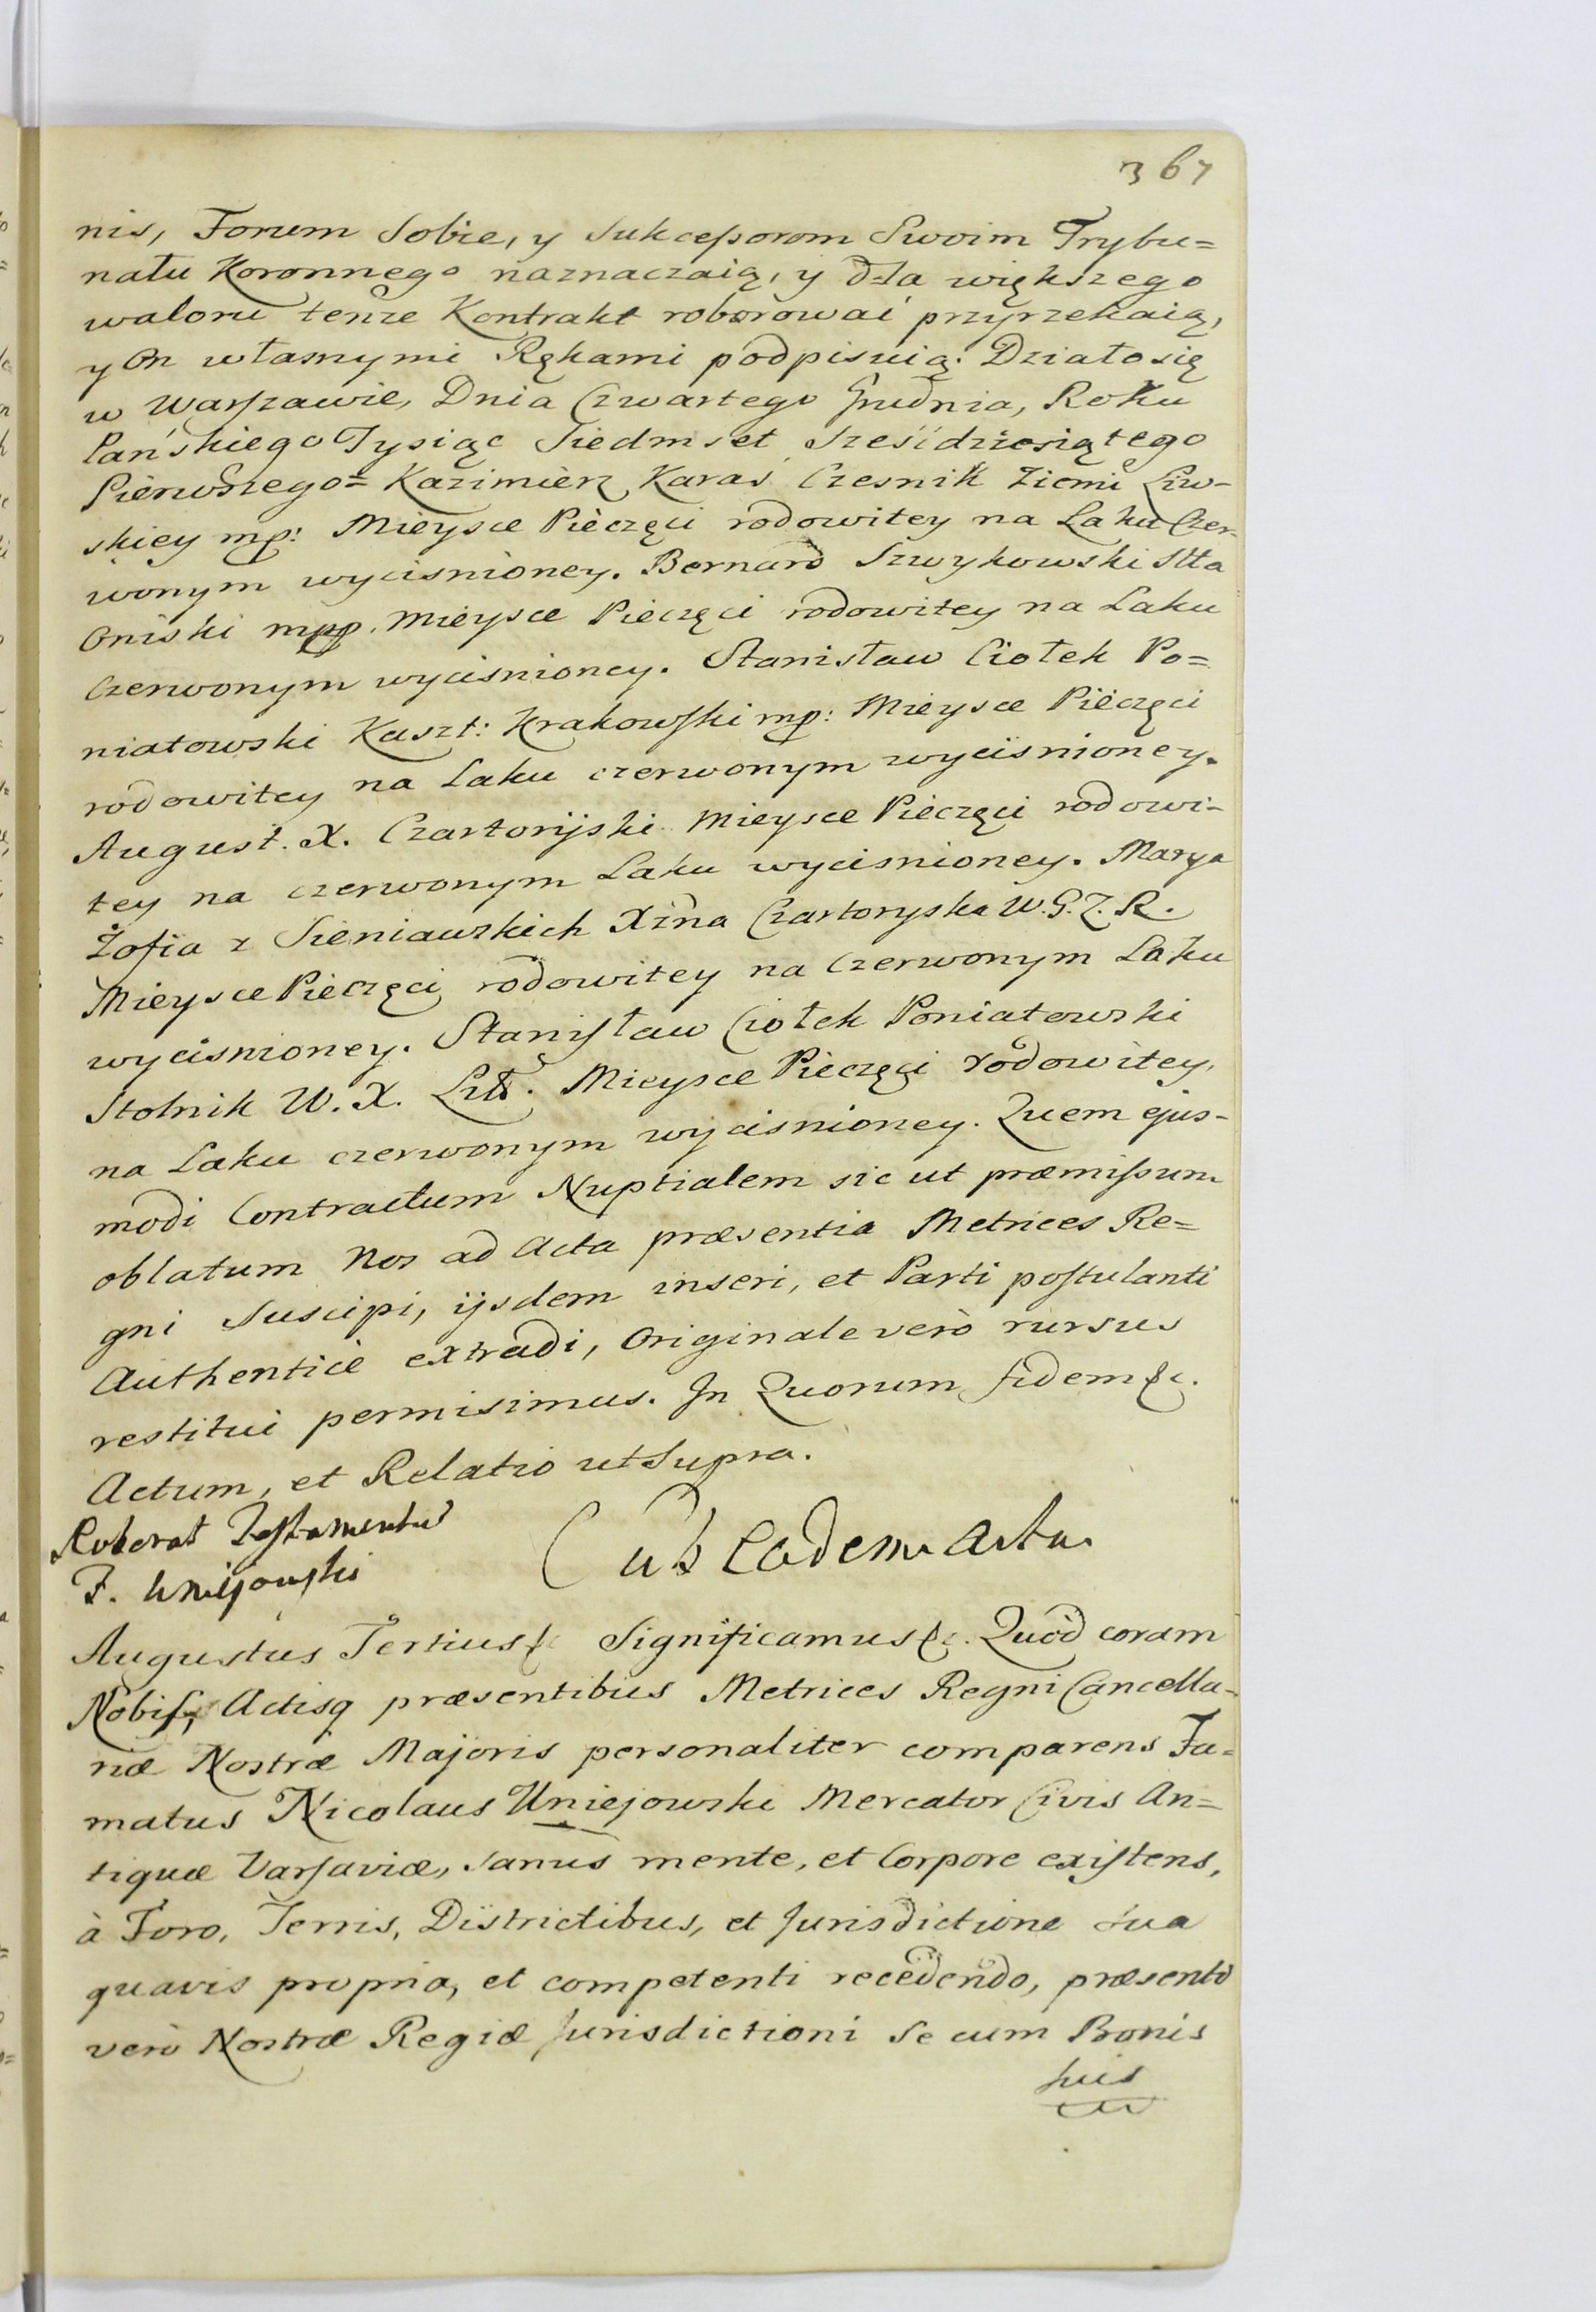 367
nis, Forum Sobie, y Sukcessorom Swoim Trybu=
nału Koronnego naznaczaią, y dla większego
waloru tenże Kontrakt roborować przyrzekaią,
y On własnymi Rękami podpisuią. Działo się
w Warszawie, Dnia Czwartego Grudnia, Roku
Pańskiego Tysiąc Siedmset Sześćdziesiątego
Pierwszego= Kazimierz Karaś Czesnik Ziemi Liw-
skiey mp: Mieysce Pieczęci rodowitey na Laku Czer-
wonym wyciśnioney. Bernard Szwykowski Stta
Oniski mpp. Mieysce Pieczęci rodowitey na Laku
Czerwonym wyciśnioney. Stanisław Ciołek Po=
niatowski Kaszt: Krakowski mp: Mieysce Pieczęci
rodowitey na Laku czerwonym wyciśnioney.
August. X. Czartorijski Mieysce Pieczęci rodowi-
tey na czerwonym Laku wyciśnioney. Marya
Zofia z Sieniawskich Xżna Czartoryska W. G. Z. R.
Mieysce Pieczęci rodowitey na Czerwonym Laku
wyciśnioney. Stanisław Ciołek Poniatowski
Stolnik W. X. Litt. Mieysce Pieczęci rodowitey,
na Laku czerwonym wyciśnioney. Quem ejus-
modi Contractum Nuptialem sic ut præmissum
oblatum Nos ad Acta præsentia Metrices Re=
gni Suscipi, ijsdem inseri, et Parti postulanti
Authenticè extradi, Originale verò rursus
restitui permisimus. In Quorum fidem &c.
Actum, et Relatio ut Supra.
Roborat Testamentum
F. Uniejowski
Sub Eadem Actu
Augustus Tertius &c Significamus &c. Quòd coram
Nobis, Actisq præsentibus Metrices Regni Cancella-
riæ Nostræ Majoris personaliter comparens Fa=
matus Nicolaus Uniejowski Mercator Civis An=
tiquæ Varsaviæ, sanus mente, et Corpore existens,
à Foro, Terris, Districtibus, et Jurisdictione sua
quavis propria, et competenti recedendo, præsenti
verò Nostræ Regiæ Jurisdictioni Se cum Bonis
suis